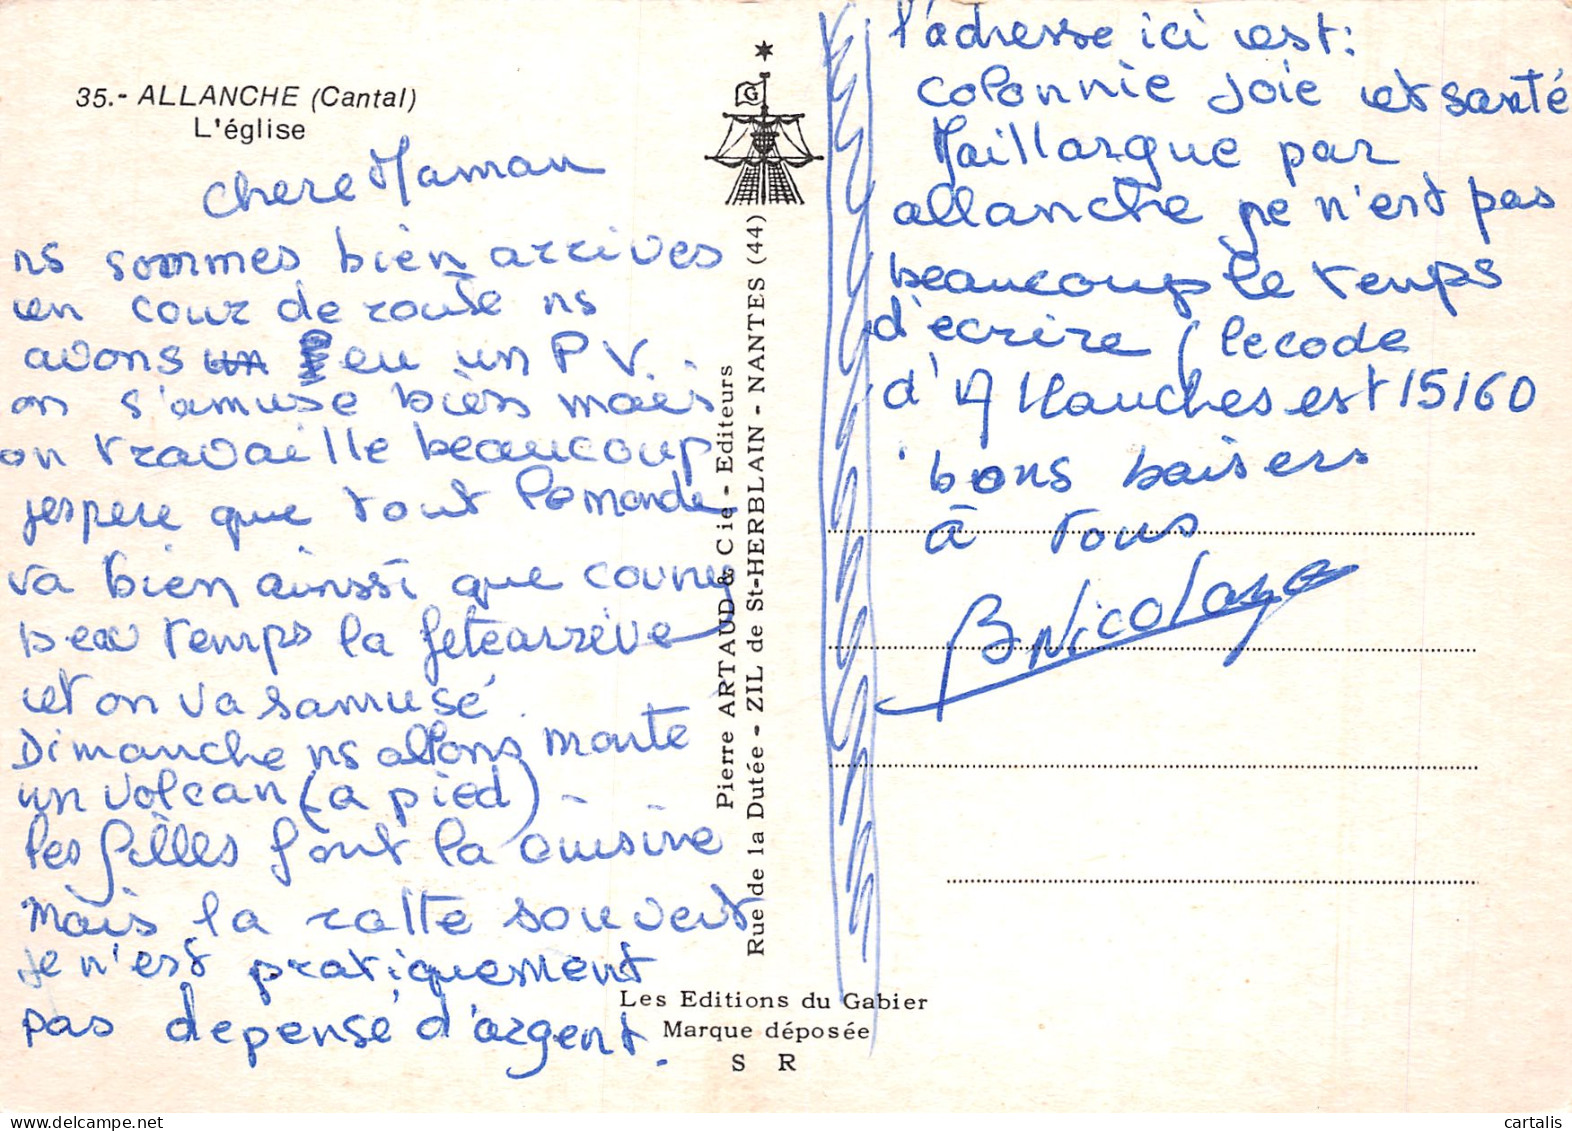 35.- ALLANCHE (Cantal)
L'église
chere Maman
ns sommes bien arrives
en cour de route ns
avons un eu un PV.
on s'amuse bien mais
on travaille beaucoup
jespere que tout le monde
va bien ainssi que
beau temps la fete arrive
et on va samusé.
Dimanche ns allons monté
un volcan (a pied) -
les filles font la cuisine
Mais la ratte souvent
je n'est pratiquement
pas depensé d'argent.
Pierre ARTAUD & Cie - Editeurs
Rue de la Dutée - ZIL de St-HERBLAIN - NANTES (44)
G
Les Editions du Gabier
Marque déposée
S R
l'adresse ici est:
colonnie Joie et santé
Maillargue par
allanche je n'est pas
beaucoup le temps
d'ecrire (le code
d'Allanches est 15160
bons baisers
à tous
cartalis